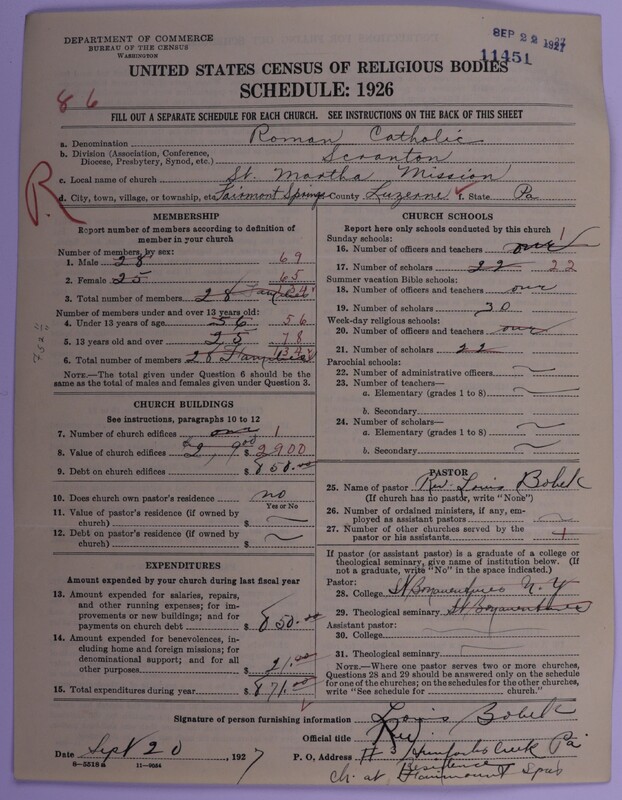 DEPARTMENT OF COMMERCE
BUREAU OF THE CENSUS
WASHINGTON
SEP 22 1927
11451
UNITED STATES CENSUS OF RELIGIOUS BODIES
SCHEDULE: 1926
86
FILL OUT A SEPARATE SCHEDULE FOR EACH CHURCH. SEE INSTRUCTIONS ON THE BACK OF THIS SHEET
R
a. Denomination Roman Catholic
b. Division (Association, Conference, Diocese, Presbytery, Synod, etc.) Scranton
c. Local name of church St. Martha Mission
d. City, town, village, or township, etc. Fairmont Springs County Luzerne f. State Pa
MEMBERSHIP
Report number of members according to definition of
member in your church
Number of members, by sex:
1. Male 28 69
2. Female 25 65
3. Total number of members 28 families
Number of members under and over 13 years old:
4. Under 13 years of age 56 56
5. 13 years old and over 25 78
6. Total number of members 28 Families 134
NOTE.—The total given under Question 6 should be the
same as the total of males and females given under Question 3.
CHURCH BUILDINGS
See instructions, paragraphs 10 to 12
7. Number of church edifices one 1
8. Value of church edifices $ 2900
9. Debt on church edifices $ 850.00
10. Does church own pastor's residence no
Yes or No
11. Value of pastor's residence (if owned by
church) $
12. Debt on pastor's residence (if owned by
church) $
EXPENDITURES
Amount expended by your church during last fiscal year
13. Amount expended for salaries, repairs,
and other running expenses; for im-
provements or new buildings; and for
payments on church debt $ 850.00
14. Amount expended for benevolences,
including home and foreign missions; for
denominational support; and for all
other purposes $ 21.00
15. Total expenditures during year $ 871.00
CHURCH SCHOOLS
Report here only schools conducted by this church
Sunday schools:
16. Number of officers and teachers one 1
17. Number of scholars 22 22
Summer vacation Bible schools:
18. Number of officers and teachers one
19. Number of scholars 30
Week-day religious schools:
20. Number of officers and teachers one
21. Number of scholars 22
Parochial schools:
22. Number of administrative officers
23. Number of teachers—
a. Elementary (grades 1 to 8)
b. Secondary
24. Number of scholars—
a. Elementary (grades 1 to 8)
b. Secondary
PASTOR
25. Name of pastor Rev. Louis Bobek
(If church has no pastor, write "None")
26. Number of ordained ministers, if any, em-
ployed as assistant pastors
27. Number of other churches served by the
pastor or his assistants 1
If pastor (or assistant pastor) is a graduate of a college or
theological seminary, give name of institution below. (If
not a graduate, write "No" in the space indicated.)
Pastor:
28. College St Bonaventures N. Y
29. Theological seminary St Bonaventures
Assistant pastor:
30. College
31. Theological seminary
NOTE.—Where one pastor serves two or more churches,
Questions 28 and 29 should be answered only on the schedule
for one of the churches; on the schedules for the other churches,
write "See schedule for ______ church."
Signature of person furnishing information Louis Bobek
Official title Rev
Date Sept 20, 1927 P. O. Address #3 Creek Pa
8—5518a 11—9034
Residence
ch. at